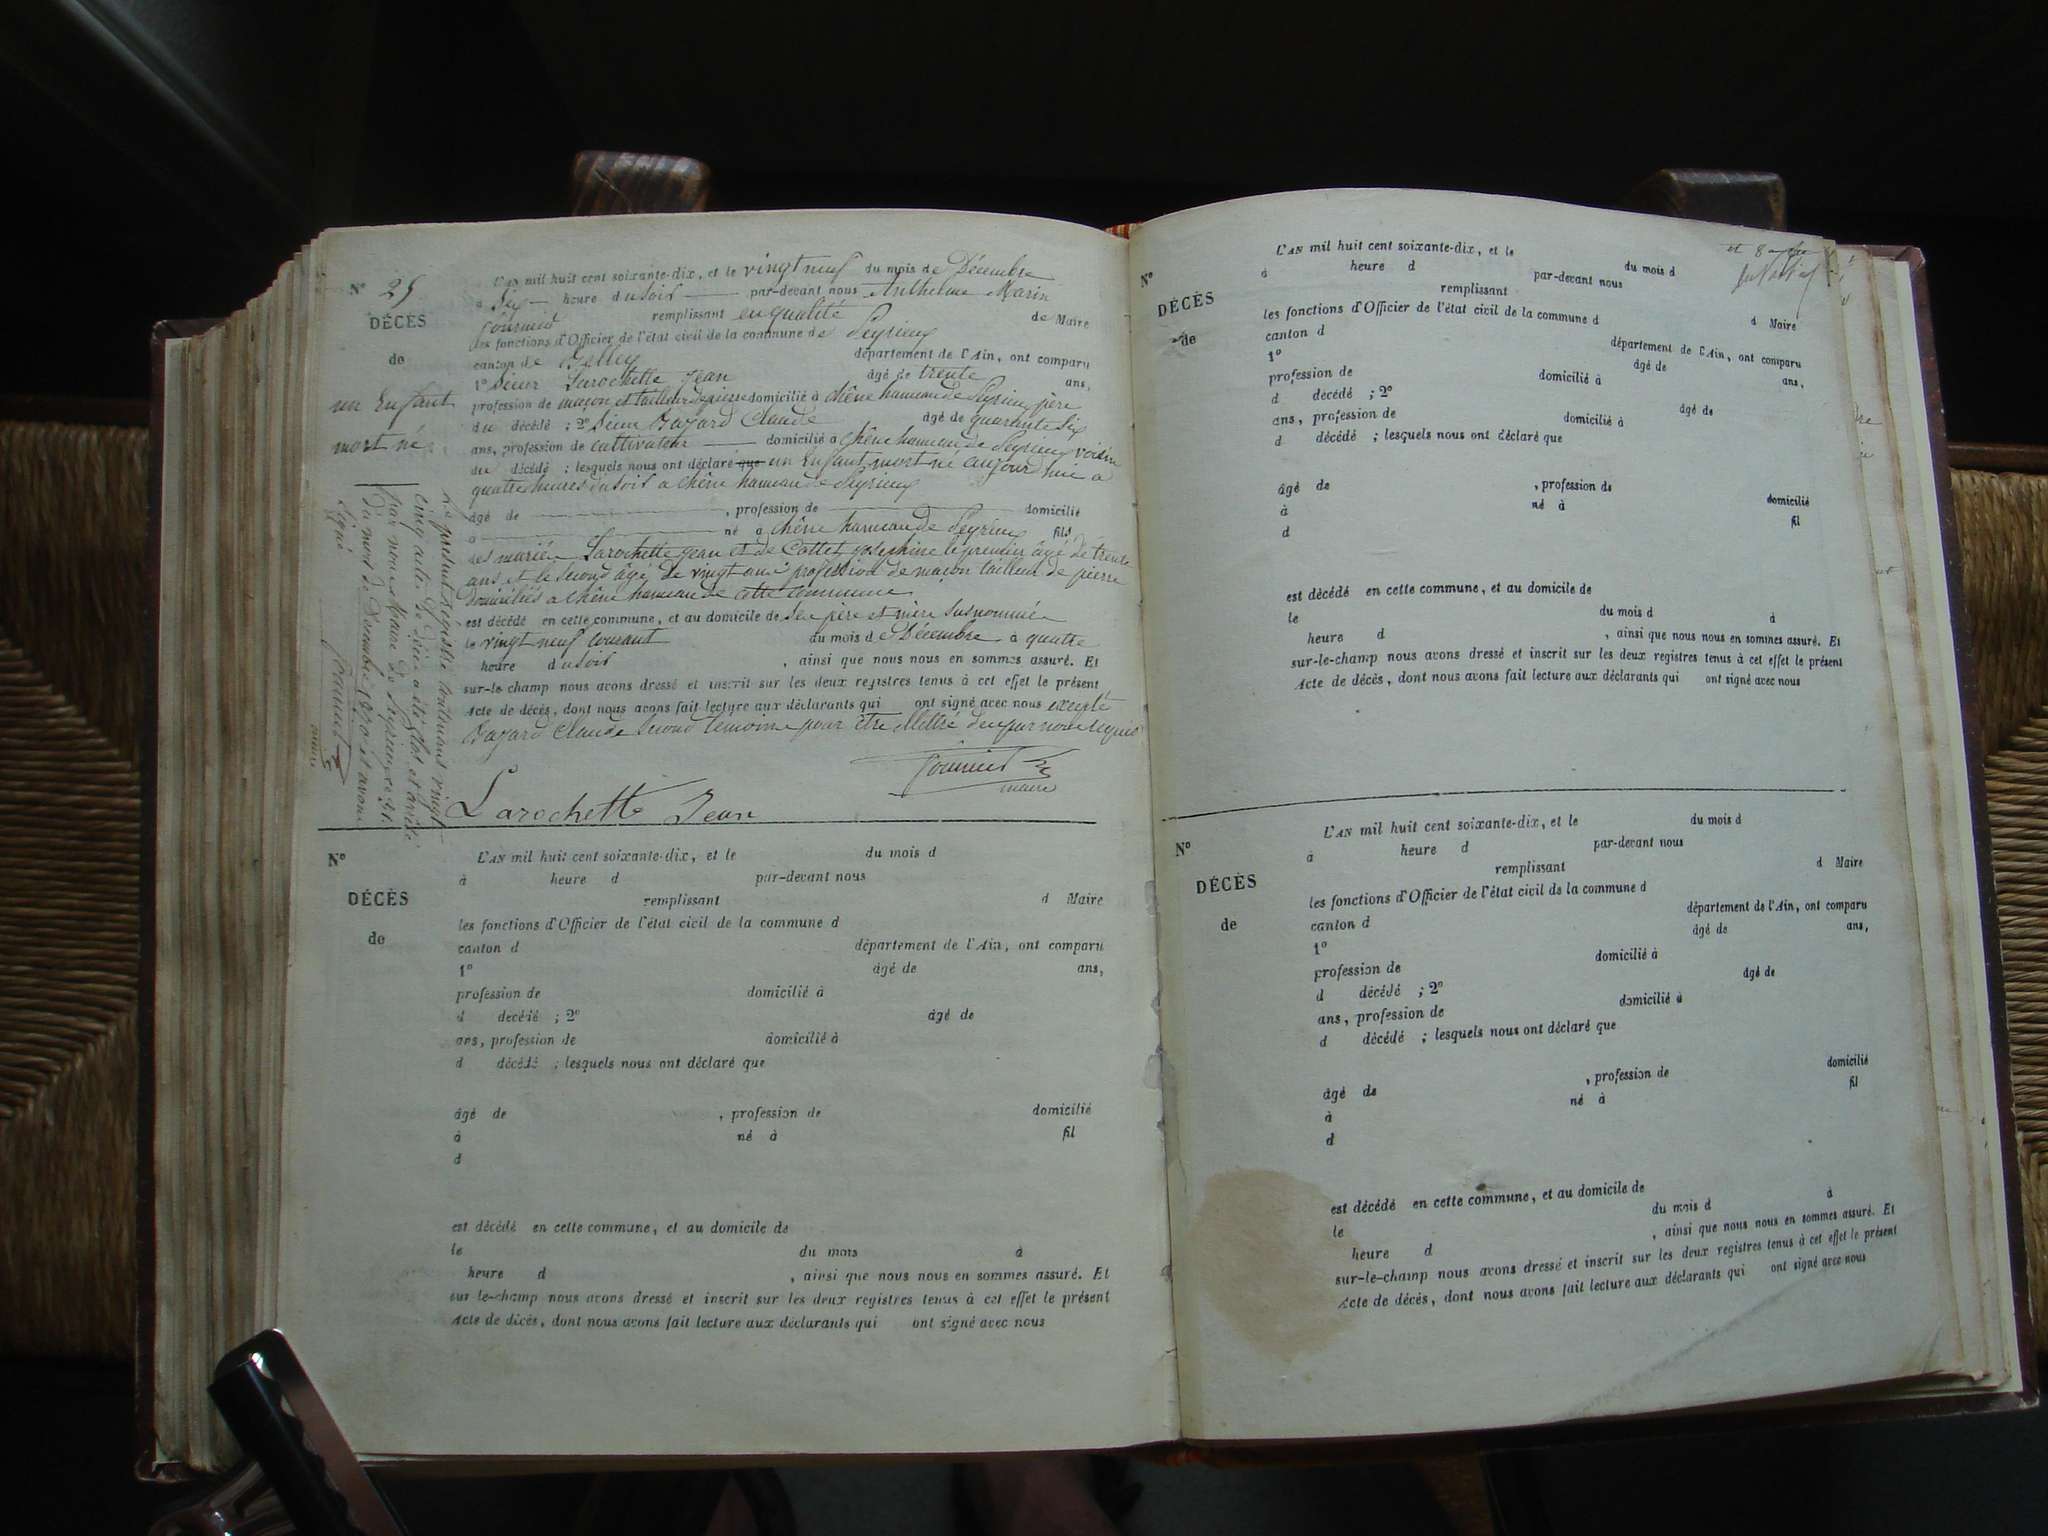 N° 25
DÉCÈS
de
un Enfant
mort né
L'AN mil huit cent soixante-dix, et le vingt neuf du mois de Décembre
à Six heure du soir par-devant nous Anthelme Marin
remplissant en qualité de Maire
les fonctions d'Officier de l'état civil de la commune de Peyrieu
canton de Belley département de l'Ain, ont comparu
1° Sieur Larochette Jean âgé de trente ans,
profession de maçon et tailleur de pierre domicilié à chêne hameau de Peyrieu père
du décédé ; 2° Sieur Bajard Claude âgé de quarante six
ans, profession de cultivateur domicilié à chêne hameau de Peyrieu voisin
du décédé ; lesquels nous ont déclaré que un Enfant mort né aujourd'hui a
quatre heures du soir a chêne hameau de Peyrieu
âgé de , profession de domicilié
à né à chêne hameau de Peyrieu fils
des mariés Larochette Jean et de Cottet Josephine le premier âgé de trente
ans et le second âgé de vingt ans profession de maçon tailleur de pierre
domiciliés a chêne hameau de cette commune
est décédé en cette commune, et au domicile de Ses père et mère susnommés
le vingt neuf courant du mois de Décembre à quatre
heure du soir , ainsi que nous nous en sommes assuré. Et
sur-le-champ nous avons dressé et inscrit sur les deux registres tenus à cet effet le présent
Acte de décès, dont nous avons fait lecture aux déclarants qui ont signé avec nous excepté
Bajard Claude second témoin pour être illettré de ce par nous requis
maire
Larochette Jean
Le présent régistre contenant vingt
cinq actes de décès a été clos et arrêté
par nous Maire de Peyrieu ce 31
du mois de Décembre 1870 et avons
signé
maire
N°
DÉCÈS
de
L'AN mil huit cent soixante-dix, et le du mois d
à heure d par-devant nous
remplissant d Maire
les fonctions d'Officier de l'état civil de la commune d
canton d département de l'Ain, ont comparu
1° âgé de ans,
profession de domicilié à
d décédé ; 2° âgé de
ans, profession de domicilié à
d décédé ; lesquels nous ont déclaré que
âgé de , profession de domicilié
à né à fil
d
est décédé en cette commune, et au domicile de
le du mois à
heure d , ainsi que nous nous en sommes assuré. Et
sur-le-champ nous avons dressé et inscrit sur les deux registres tenus à cet effet le présent
Acte de décès, dont nous avons fait lecture aux déclarants qui ont signé avec nous
N°
DÉCÈS
de
L'AN mil huit cent soixante-dix, et le du mois d
à heure d par-devant nous
remplissant d Maire
les fonctions d'Officier de l'état civil de la commune d
canton d département de l'Ain, ont comparu
1° âgé de ans,
profession de domicilié à
d décédé ; 2° âgé de
ans, profession de domicilié à
d décédé ; lesquels nous ont déclaré que
âgé de , profession de domicilié
à né à fil
d
est décédé en cette commune, et au domicile de
le du mois d à
heure d , ainsi que nous nous en sommes assuré. Et
sur-le-champ nous avons dressé et inscrit sur les deux registres tenus à cet effet le présent
Acte de décès, dont nous avons fait lecture aux déclarants qui ont signé avec nous
N°
DÉCÈS
de
L'AN mil huit cent soixante-dix, et le du mois d
à heure d par-devant nous
remplissant d Maire
les fonctions d'Officier de l'état civil de la commune d
canton d département de l'Ain, ont comparu
1° âgé de ans,
profession de domicilié à
d décédé ; 2° âgé de
ans, profession de domicilié à
d décédé ; lesquels nous ont déclaré que
âgé de , profession de domicilié
à né à fil
d
est décédé en cette commune, et au domicile de
le du mois d à
heure d , ainsi que nous nous en sommes assuré. Et
sur-le-champ nous avons dressé et inscrit sur les deux registres tenus à cet effet le présent
Acte de décès, dont nous avons fait lecture aux déclarants qui ont signé avec nous